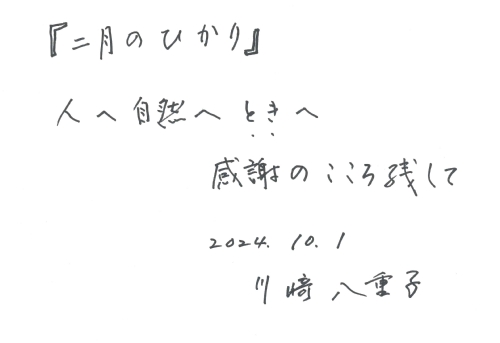 『二月のひかり』
人へ自然へときへ
感謝のこころ残して
2024. 10. 1
川﨑八重子